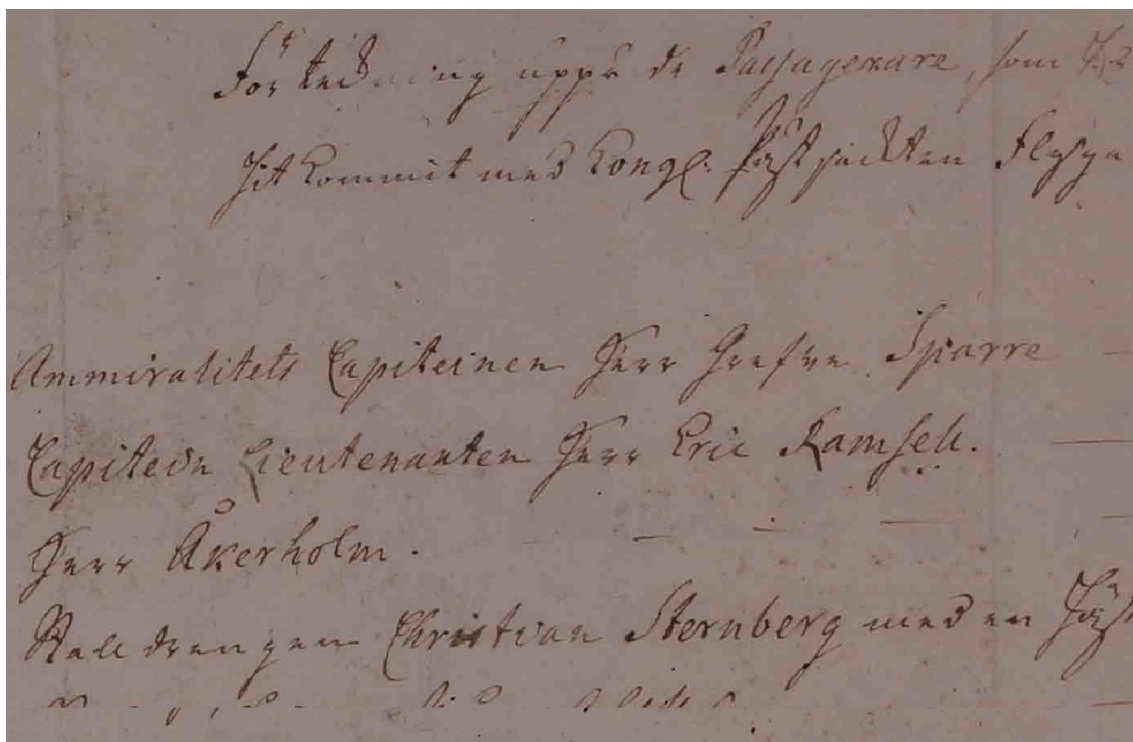 Förteckning uppå de Passagerare, som
hit kommit med Kongl: Post jackten
Ammiralitets Capiteinen Herr Grefve Sparre
Capitein Lieutenanten Herr Eric Ramsell.
Herr Åkerholm.
Stalldrengen Christian Sternberg med en